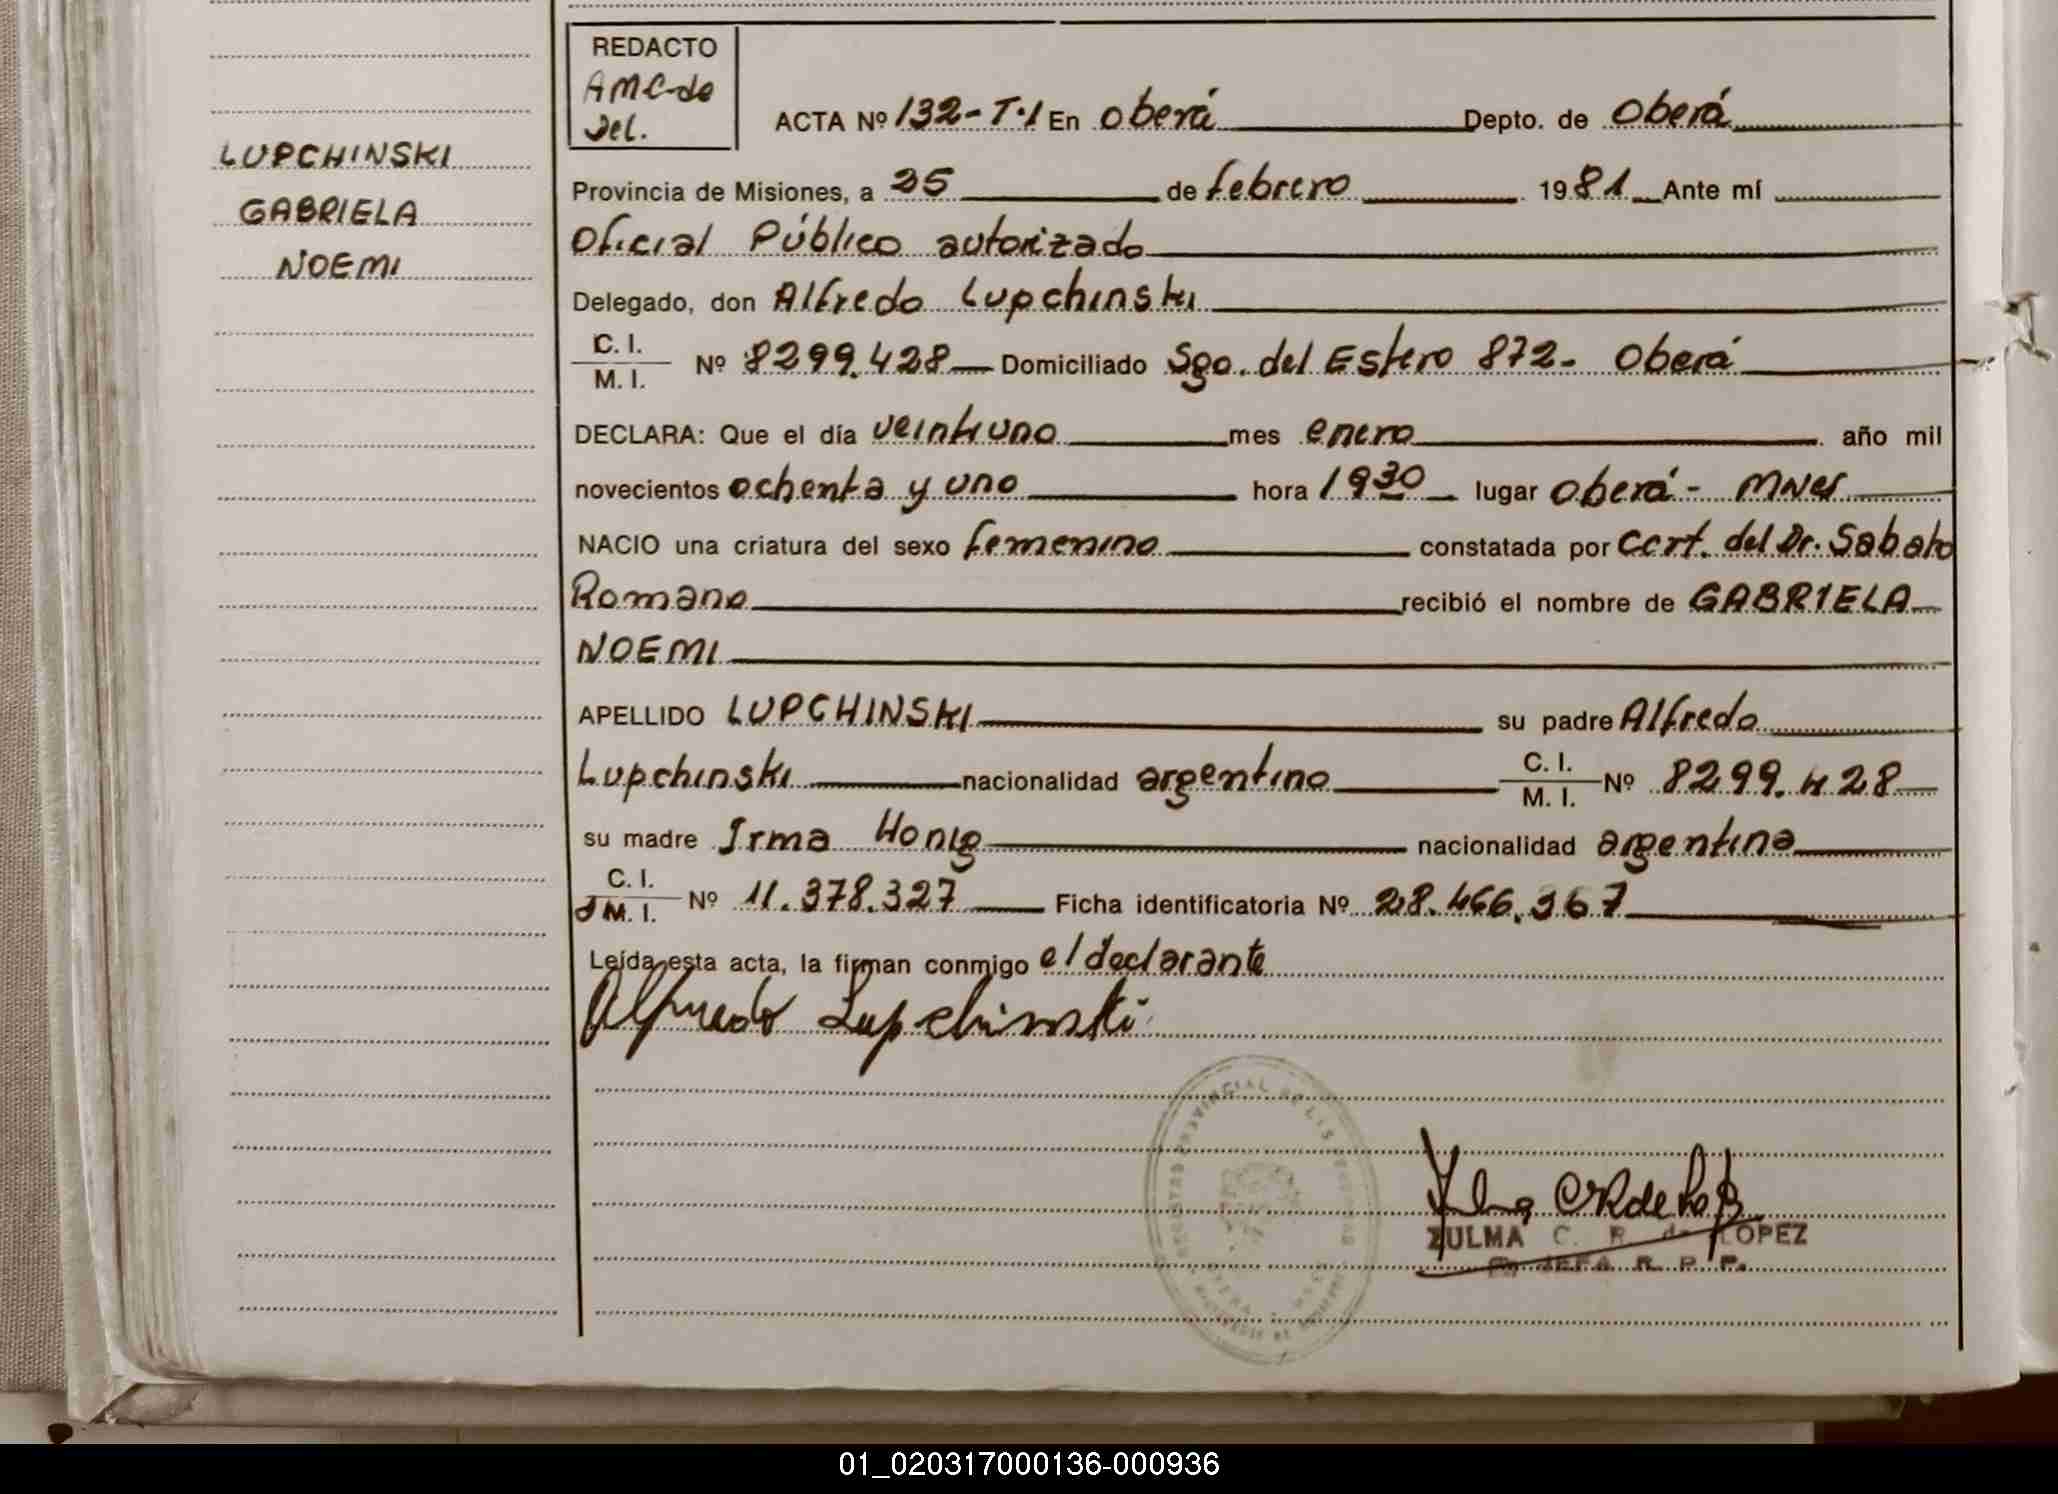 LUPCHINSKI
GABRIELA
NOEMI
REDACTO
AMC de
Del.
ACTA Nº 132-T·1 En Oberá Depto. de Oberá
Provincia de Misiones, a 25 de febrero 1981 Ante mí
Oficial Público autorizado
Delegado, don Alfredo Lupchinski
C. I.
M. I. Nº 8299.428 Domiciliado Sgo. del Estero 872- Oberá
DECLARA: Que el día veintiuno mes enero año mil
novecientos ochenta y uno hora 1930 lugar Oberá - Mnes
NACIO una criatura del sexo femenino constatada por Cert. del Dr. Sabato
Romano recibió el nombre de GABRIELA
NOEMI
APELLIDO LUPCHINSKI su padre Alfredo
Lupchinski nacionalidad argentino C. I. M. I. Nº 8299.428
su madre Irma Honig nacionalidad argentina
C. I.
M. I. Nº 11.378.327 Ficha identificatoria Nº 28.466.367
Leída esta acta, la firman conmigo el declarante
Alfredo Lupchinski
ZULMA C. R. de LOPEZ
JEFA R. P. P.
01_020317000136-000936